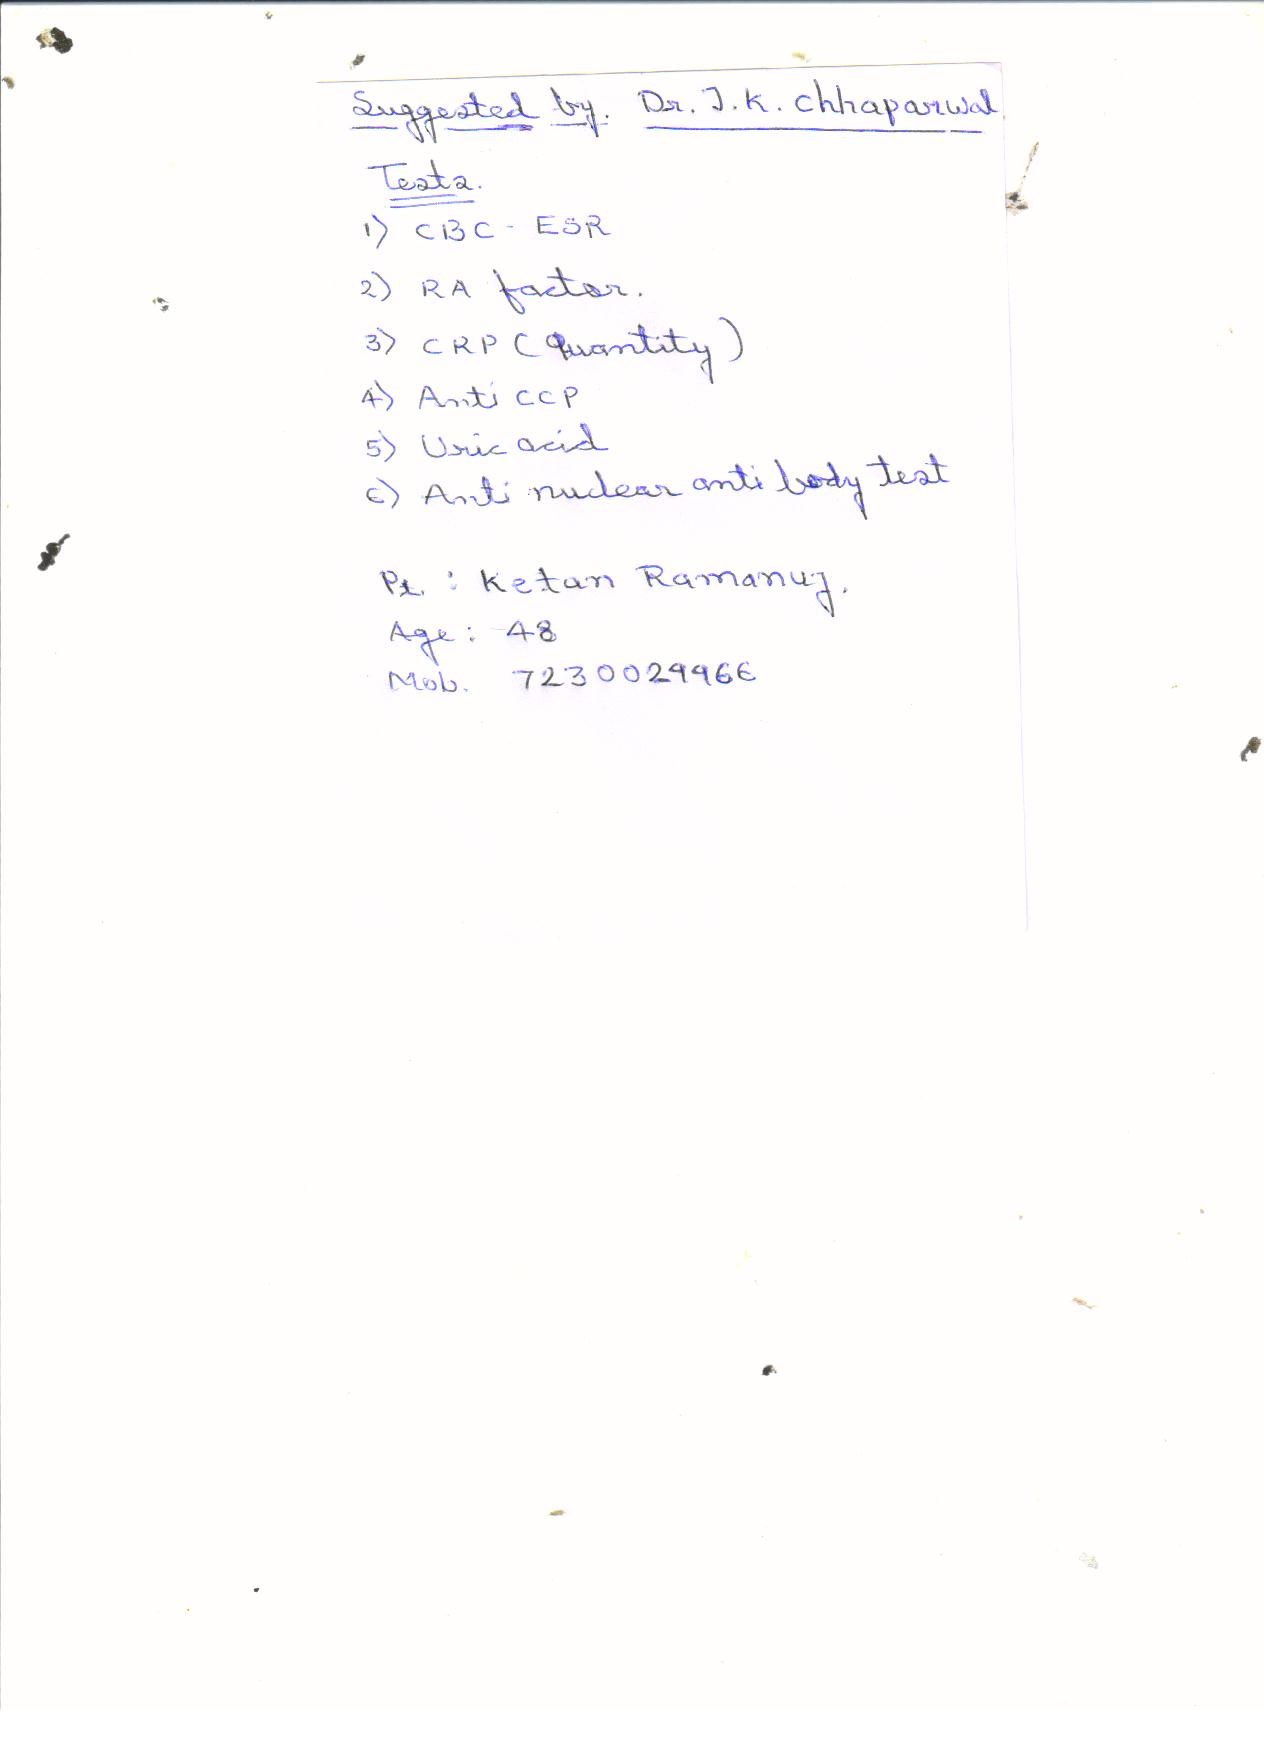 Suggested by. Dr. J.K. Chhaparwal
Tests.
1) CBC - ESR
2) RA factor.
3) CRP (Quantity)
4) Anti CCP
5) Uric acid
6) Anti nuclear anti body test
Pt. : Ketan Ramanuj.
Age : 48
Mob. 7230029966